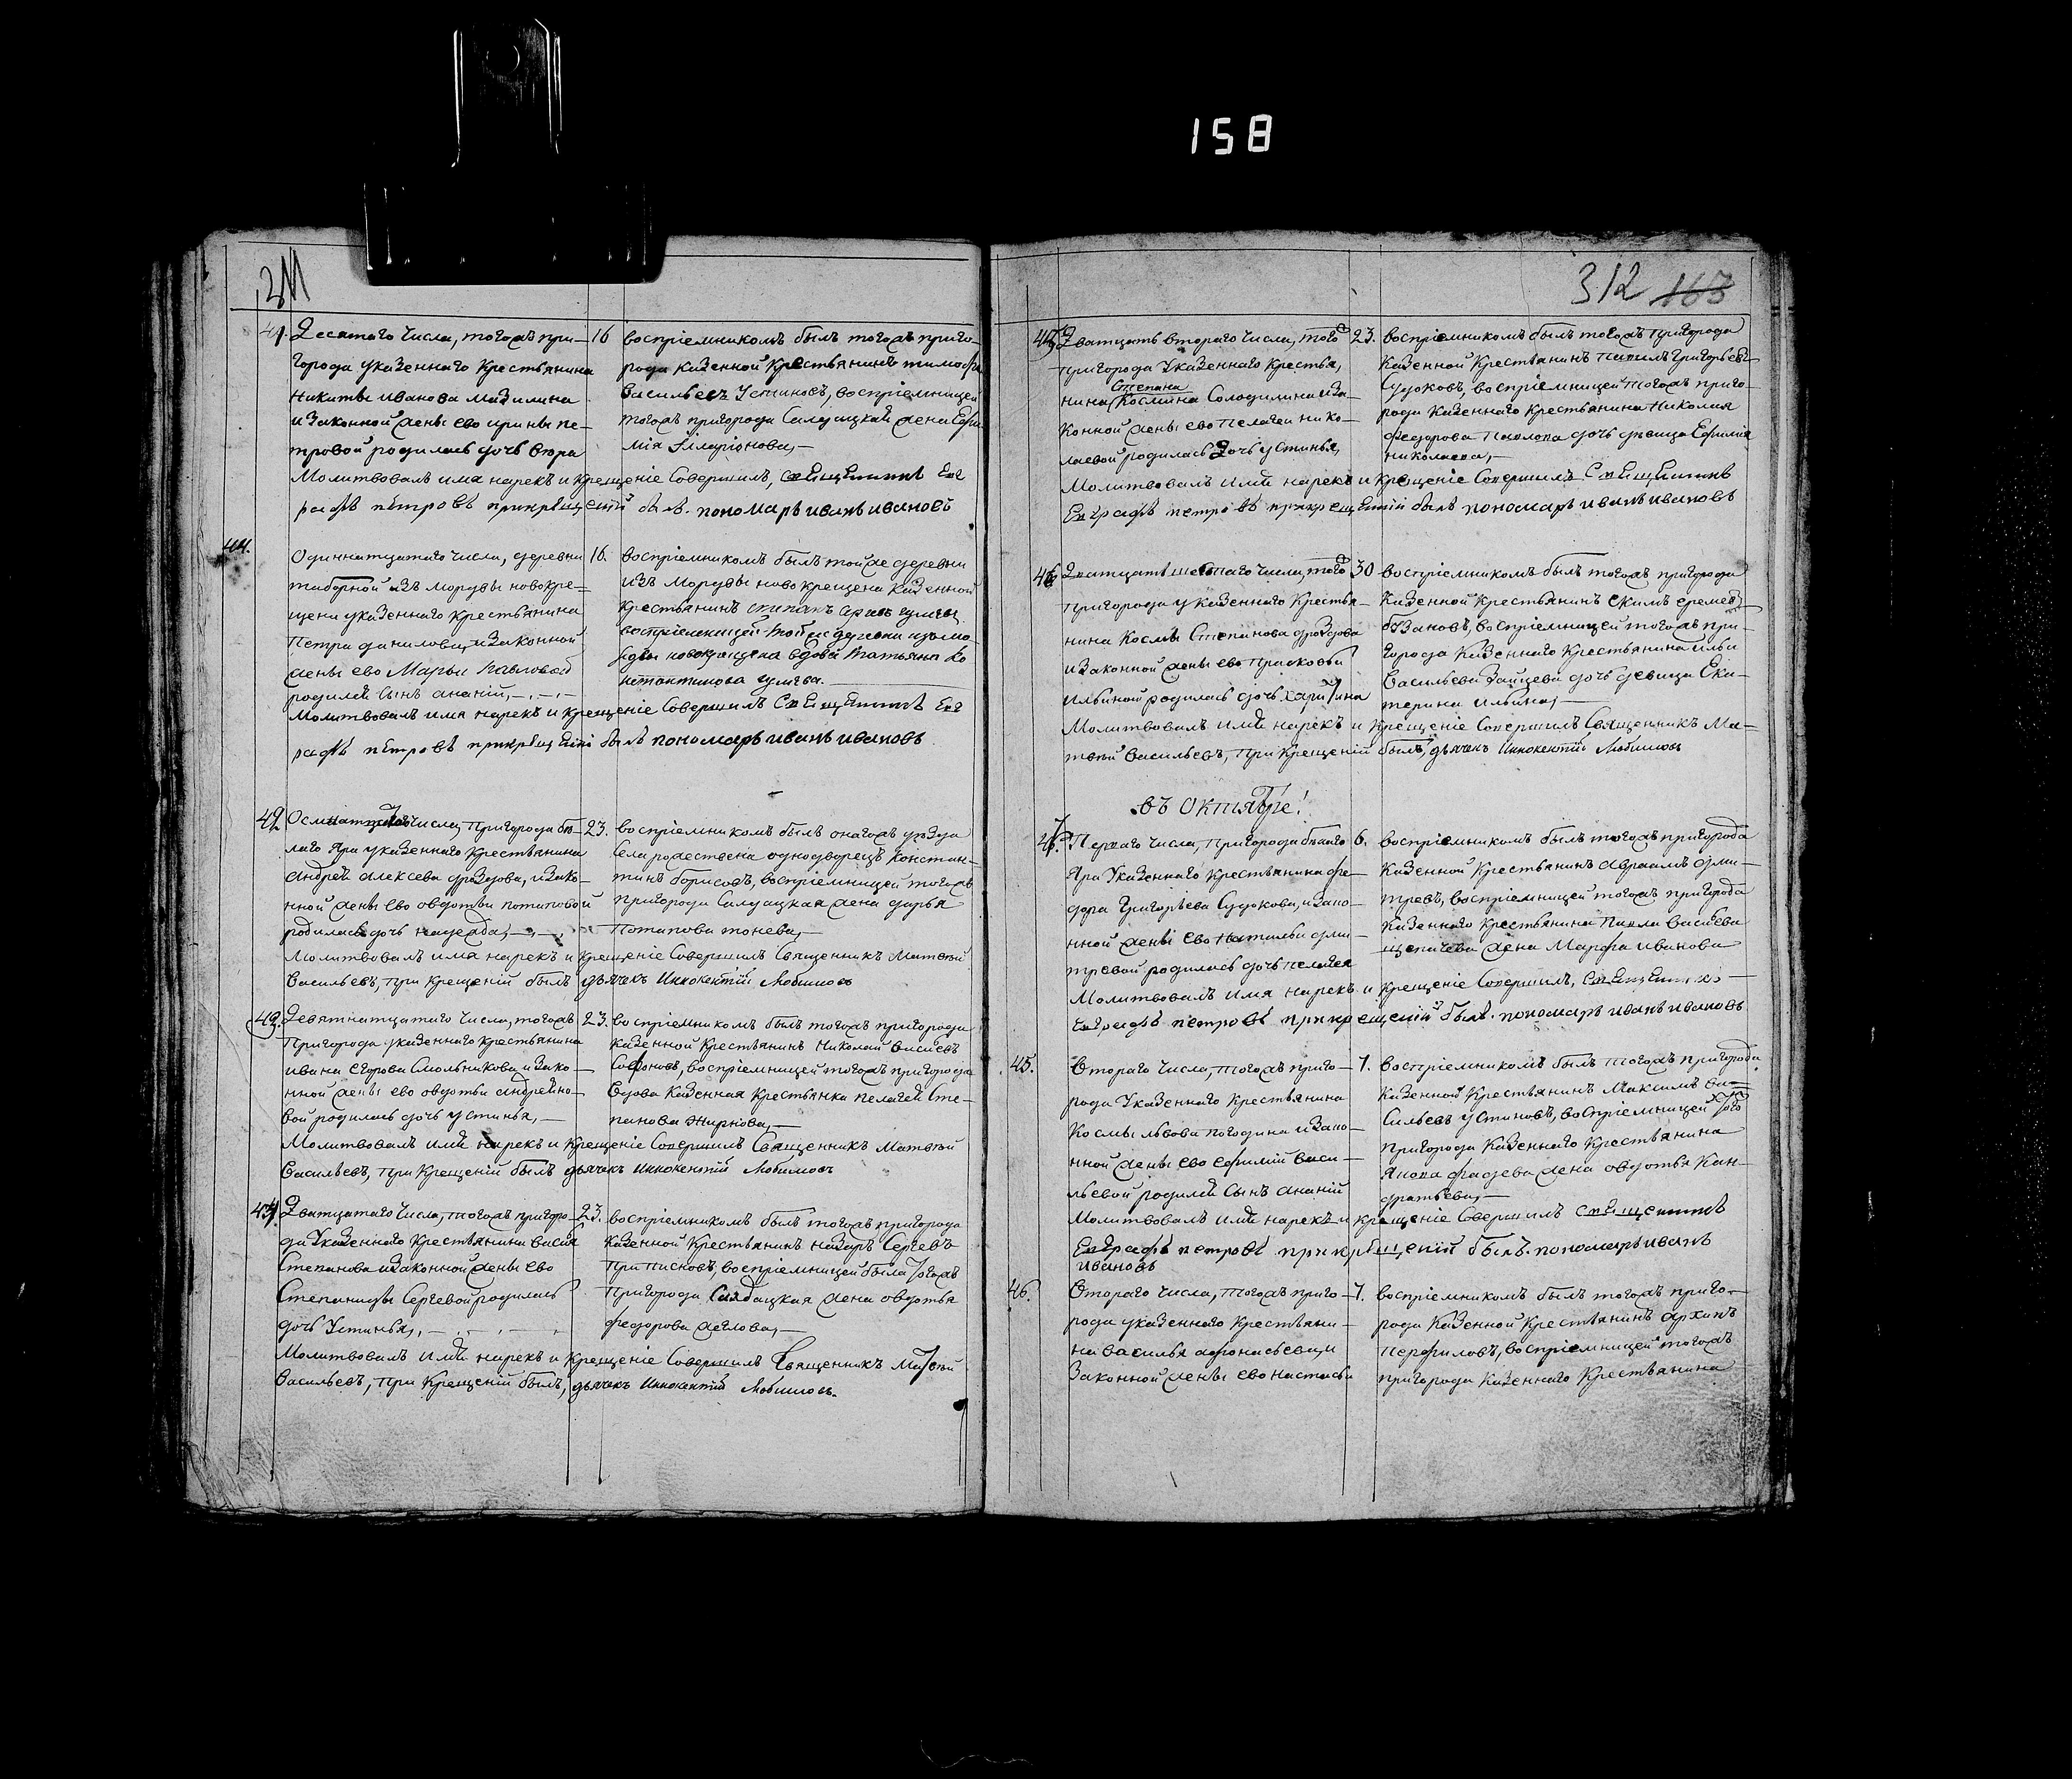 158
311
41. Десятаго числа, тогожъ при- 16
города указеннаго крестьянина
никиты иванова мазилина
и законной жены ево ирины пе-
тровой родилась дочь вюра
воспріемникомъ былъ тогожъ приго-
рода казенной крестьянинъ тимофей
васильевъ Устиновъ, воспріемницей
тогожъ пригорода салдацкая жена Ефи-
мія Иларіонова,-
Молитвовалъ имя нарекъ и крещеніе Совершилъ, священникъ Евг
рафъ петровъ прикрещеній былъ. пономарь иванъ ивановъ
44.
Одиннатцатаго числа, деревни 16.
таборной изъ мордвы новокре-
щена указеннаго крестьянина
Петра данилова, изаконной
жены ево Марьи павловой
родился сынъ ананій,-
воспріемникомъ былъ тойже деревни
изъ мордвы новокрещена казенной
крестьянинъ степанъ
воспріемницей тойже деревни измо
рдвы новокрещена вдова татьяна ко
Молитвовалъ имя нарекъ и крещеніе Совершилъ Священникъ Евг
рафъ петровъ прикрещеніи былъ пономарь иванъ ивановъ
42. числа, Пригорода бѣ- 23.
лаго Яра указеннаго крестьянина
андрея алексева дроздова, изако-
нной жены ево овдотьи потаповой
родилась дочь надежда,-
воспріемникомъ былъ онагожъ уѣзда
села рожествена однодворецъ констан-
тинъ борисовъ, воспріемницей тогожъ
пригорода Салдацкая жена дарья
потапова тонева,-
Молитвовалъ имя нарекъ и крещеніе Совершилъ Священникъ Матвѣй
Васильевъ, при крещеній былъ дьячекъ Иннокентій Любимовъ
43. Девятнатцатаго числа, тогожъ 23.
пригорода указеннаго крестьянина
ивана егорова Смольникова изако-
нной жены ево овдотьи андрейно-
вой родилась дочь устинья,-
воспріемникомъ былъ тогожъ пригорода
казенной крестьянинъ николай васильевъ
Софоновъ, воспріемницей тогожъ пригорода
вдова казенная крестьянка пелагея Сте-
панова жирнова,-
Молитвовалъ имя нарекъ и крещеніе Совершилъ Священникъ Матвѣй
Васильевъ, при крещеній былъ дьячекъ Иннокентій Любимовъ
Дватцатаго числа, тогожъ пригоро- 23.
да Указеннаго крестьянина василя
Степанова изаконной жены ево
Степаниды Сергевой родилась
дочь Устинья,-
воспріемникомъ былъ тогожъ пригорода
казенной крестьянинъ назаръ Сергевъ
приписновъ, воспріемницей была тогожъ
пригорода Салдацкая жена овдотья
федорова жеглова,-
Молитвовалъ имя нарекъ и крещеніе Совершилъ Священникъ Матвѣй
Васильевъ, при крещеній былъ, дьячекъ Иннокентій Любимовъ.
312 163
45. Дватцать втораго числа, тогожъ 23.
пригорода Указеннаго крестья,
Степана
нина космина Солодилина иза-
конной жены ево пелагеи нико-
лаевой родилась дочь устинья,
воспріемникомъ былъ тогожъ пригорода
казенной крестьянинъ павелъ григорьевъ
Судоковъ, воспріемницей тогожъ приго-
рода казеннаго крестьянина николая
федорова павлова дочь девица Ефимія
николаева,-
Молитвовалъ имя нарекъ и крещеніе Совершилъ Священникъ
Евграфъ петровъ прикрещеній былъ пономарь иванъ ивановъ
46 Дватцать шестаго числа, тогожъ 30
пригорода указеннаго крестья-
нина космы Степанова дроздова
изаконной жены ево Прасковьи
ильиной родилась дочь харитина
воспріемникомъ былъ тогожъ пригорода
казенной крестьянинъ екимъ еремевъ
воспріемницей тогожъ при-
города казеннаго крестьянина ильи
васильева зайцева дочь девица Ека-
терина ильина,-
Молитвовалъ имя нарекъ и крещеніе Совершилъ Священникъ Ма-
твѣй васильевъ, при крещеній былъ, дьячекъ Иннокентій Любимовъ
въ Октябре!
Перваго числа, Пригорода бѣлаго 6.
Яра Указеннаго крестьянина фе-
дора Григорьева Судокова, изако-
нной жены ево натальи дми-
тревой родилась дочь пелагея
воспріемникомъ былъ тогожъ пригорода
казенной крестьянинъ авраамъ дми-
тревъ, воспріемницей тогожъ пригорода
казеннаго крестьянина павла васильева
щепачева жена Марфа иванова
Молитвовалъ имя нарекъ и крещеніе Совершилъ, Священникъ
Евграфъ петровъ прикрещеній былъ. пономарь иванъ ивановъ
45. Втораго числа, тогожъ приго- 7.
рода Указеннаго крестьянина
космы львова погодина изако-
нной жены ево ефимій васи-
льевой родился сынъ ананій
воспріемникомъ былъ тогожъ пригорода
казенной крестьянинъ Максимъ ва-
сильевъ устиновъ, воспріемницей тогожъ
пригорода казеннаго крестьянина
якова фадева жена овдотья кан-
дратьева,-
Молитвовалъ имя нарекъ и крещеніе Совершилъ Священникъ
Евграфъ петровъ прикрещеній былъ. пономарь иванъ
ивановъ
46. Втораго числа, тогожъ приго- 7.
рода указеннаго крестьяни-
на василья афонасьева, и
законной жены ево настасьи
воспріемникомъ былъ тогожъ приго-
рода казенной крестьянинъ архипъ
перфиловъ, воспріемницей тогожъ
пригорода казеннаго крестьянина